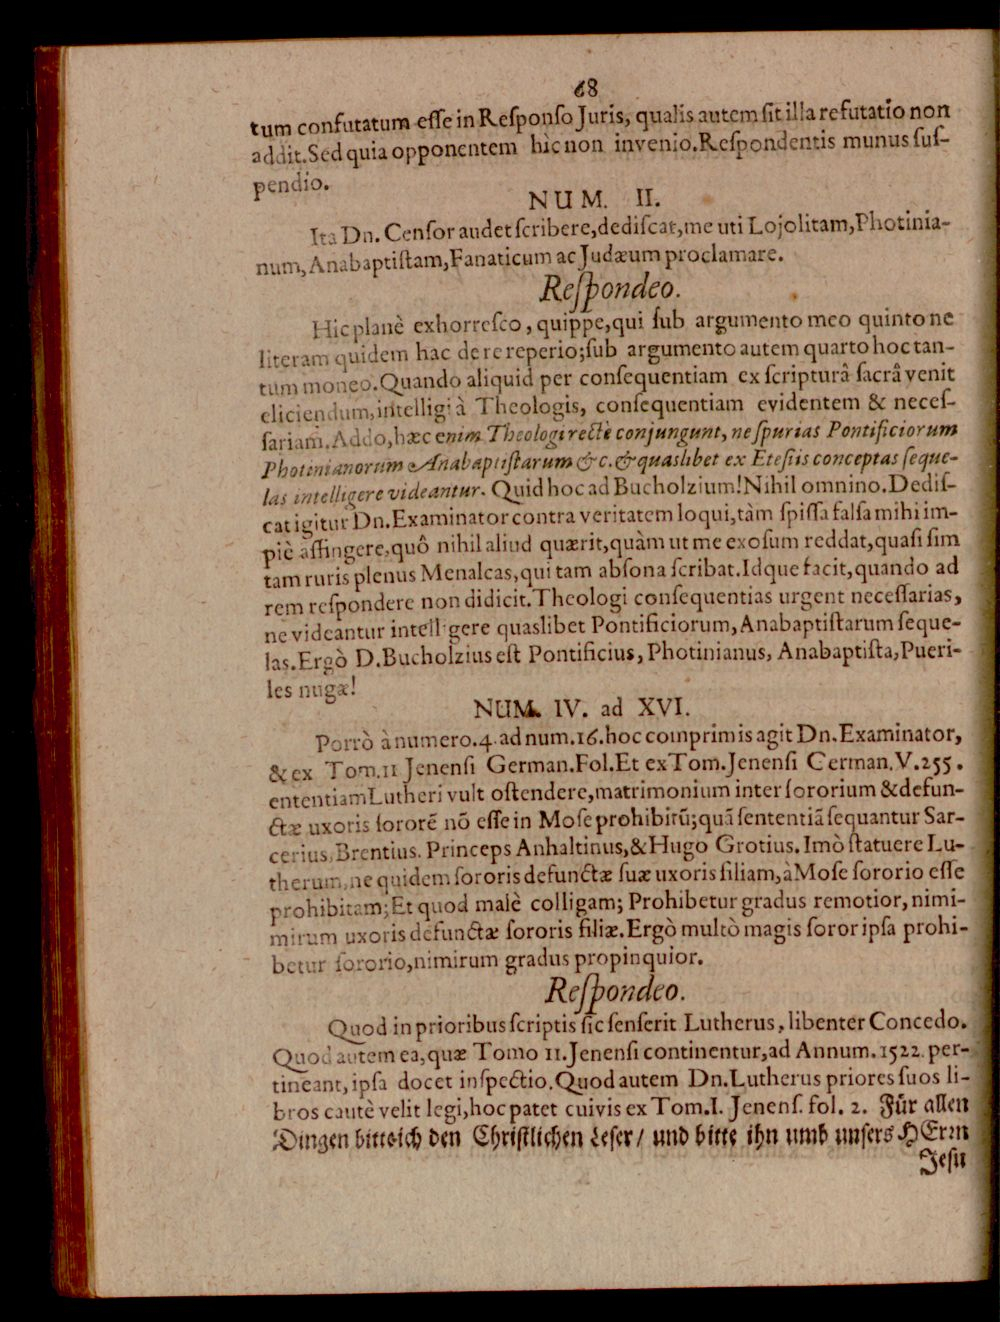 68
tum confutatum esse in Responso Juris, qualis autem sit illa refutatio non
addit. Sed quia opponentem hìc non invenio. Respondentis munus sus-
pendio.
NUM. II.
Ita Dn. Censor audet scribere, dediscat, me uti Lojolitam, Photinia-
num, Anabaptistam, Fanaticum ac Judæum proclamare.
Respondeo.
Hic planè exhorresco, quippe, qui sub argumento meo quinto ne
literam quidem hac de re reperio; sub argumento autem quarto hoc tan-
tum moneo. Quando aliquid per consequentiam ex scripturâ sacrâ venit
eliciendum, intelligi à Theologis, consequentiam evidentem & neces-
sariam. Addo, hæc enim Theologi rectè conjungunt, ne spurias Pontificiorum
Photinianorum Anabaptistarum &c. & quaslibet ex Etesiis conceptas seque-
las intelligere videantur. Quid hoc ad Bucholzium! Nihil omnino. Dedis-
cat igitur Dn. Examinator contra veritatem loqui, tàm spissa falsa mihi im-
piè affingere, quô nihil aliud quærit, quàm ut me exosum reddat, quasi sim
tam ruris plenus Menalcas, qui tam absona scribat. Idque facit, quando ad
rem respondere non didicit. Theologi consequentias urgent necessarias,
ne videantur intelligere quaslibet Pontificiorum, Anabaptistarum seque-
las. Ergò D. Bucholzius est Pontificius, Photinianus, Anabaptista, Pueri-
les nugæ!
NUM. IV. ad XVI.
Porrò à numero. 4. ad num. 16. hoc comprimis agit Dn. Examinator,
& ex Tom. 11 Jenensi German. Fol. Et ex Tom. Jenensi German. V. 255.
ententiam Lutheri vult ostendere, matrimonium inter sororium & defun-
ctæ uxoris sororẽ nõ esse in Mose prohibitũ; quã sententiã sequantur Sar-
cerius, Brentius. Princeps Anhaltinus, & Hugo Grotius. Imò statuere Lu-
therum, ne quidem sororis defunctæ suæ uxoris filiam, à Mose sororio esse
prohibitam; Et quod malè colligam; Prohibetur gradus remotior, nimi-
mirum uxoris defunctæ sororis filiæ. Ergò multò magis soror ipsa prohi-
betur sororio, nimirum gradus propinquior.
Respondeo.
Quod in prioribus scriptis sic senserit Lutherus, libenter Concedo.
Quod autem ea, quæ Tomo 11. Jenensi continentur, ad Annum. 1522. per-
tineant, ipsa docet inspectio. Quod autem Dn. Lutherus priores suos li-
bros cautè velit legi, hoc patet cuivis ex Tom. I. Jenens. fol. 2. Für allen
Dingen bitte ich den Christlichen Leser/ und bitte ihn umb unsers HErrn
Jesu